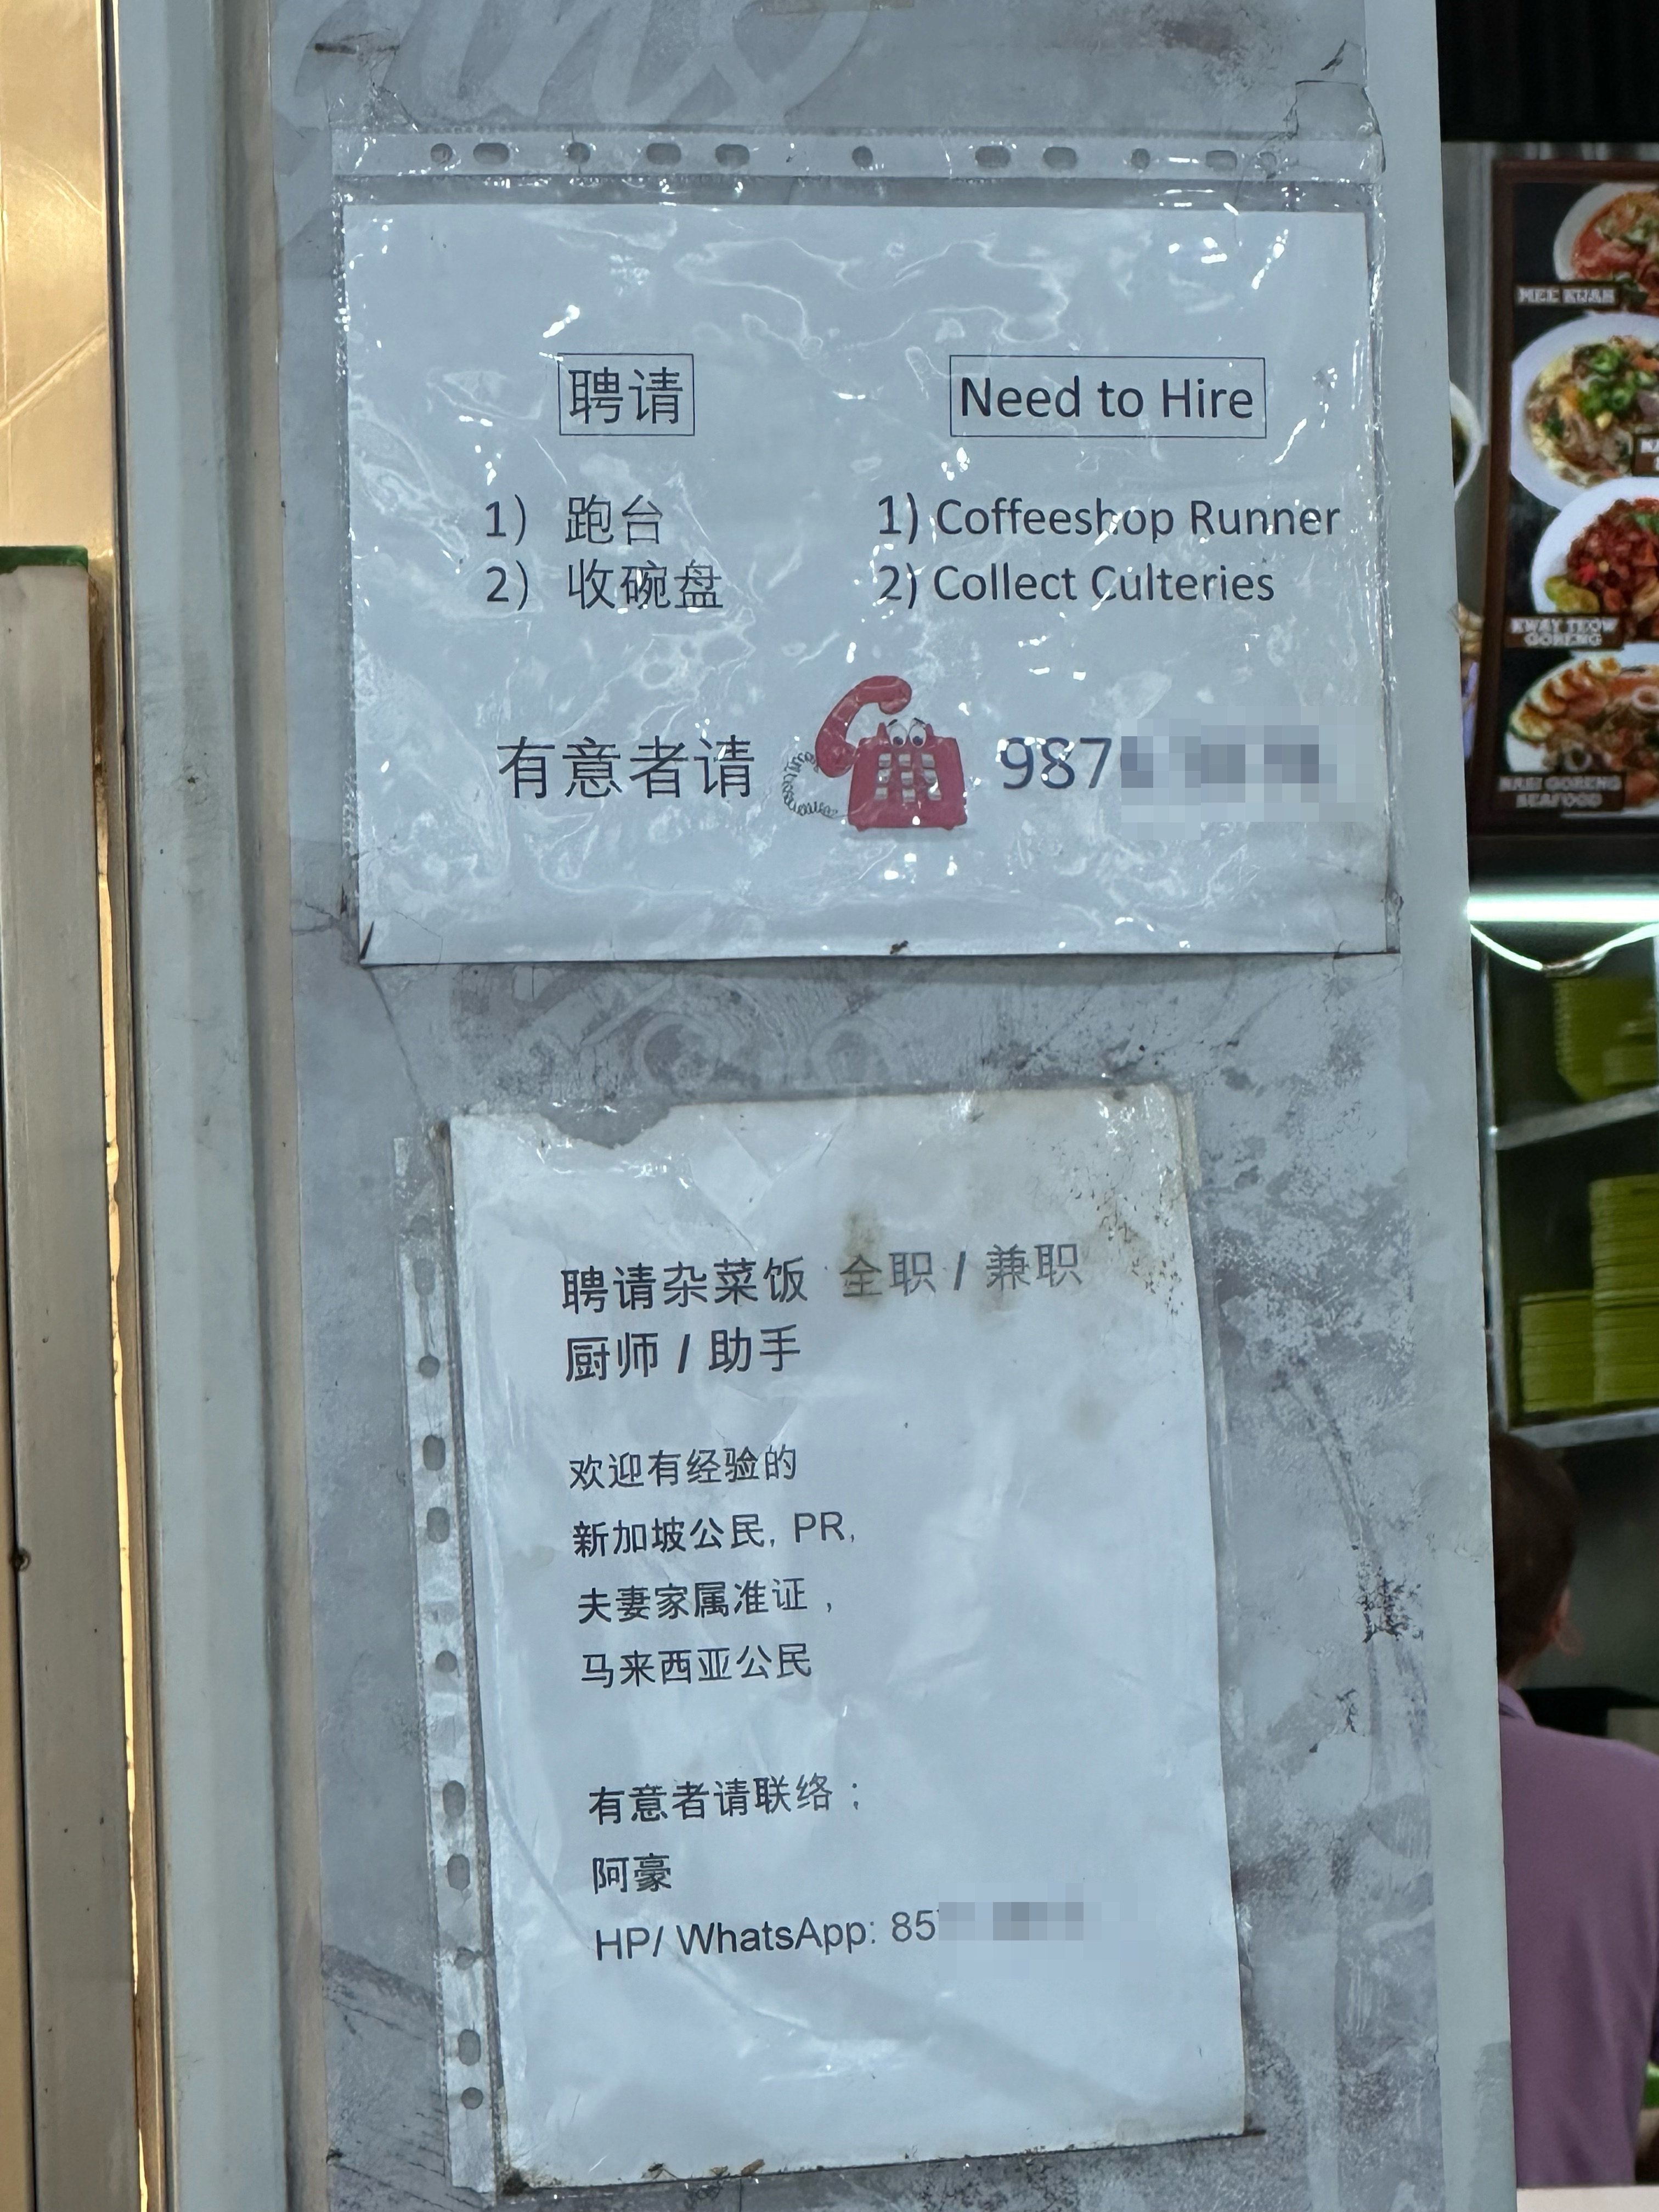 聘请
Need to Hire
1) 跑台
2) 收碗盘
1) Coffeeshop Runner
2) Collect Culteries
有意者请
987
聘请杂菜饭 全职 / 兼职
厨师 / 助手
欢迎有经验的
新加坡公民, PR,
夫妻家属准证,
马来西亚公民
有意者请联络;
阿豪
HP/ WhatsApp: 85
MEE KUAH
KWAY TEOW
GORENG
NASI GORENG
SEAFOOD